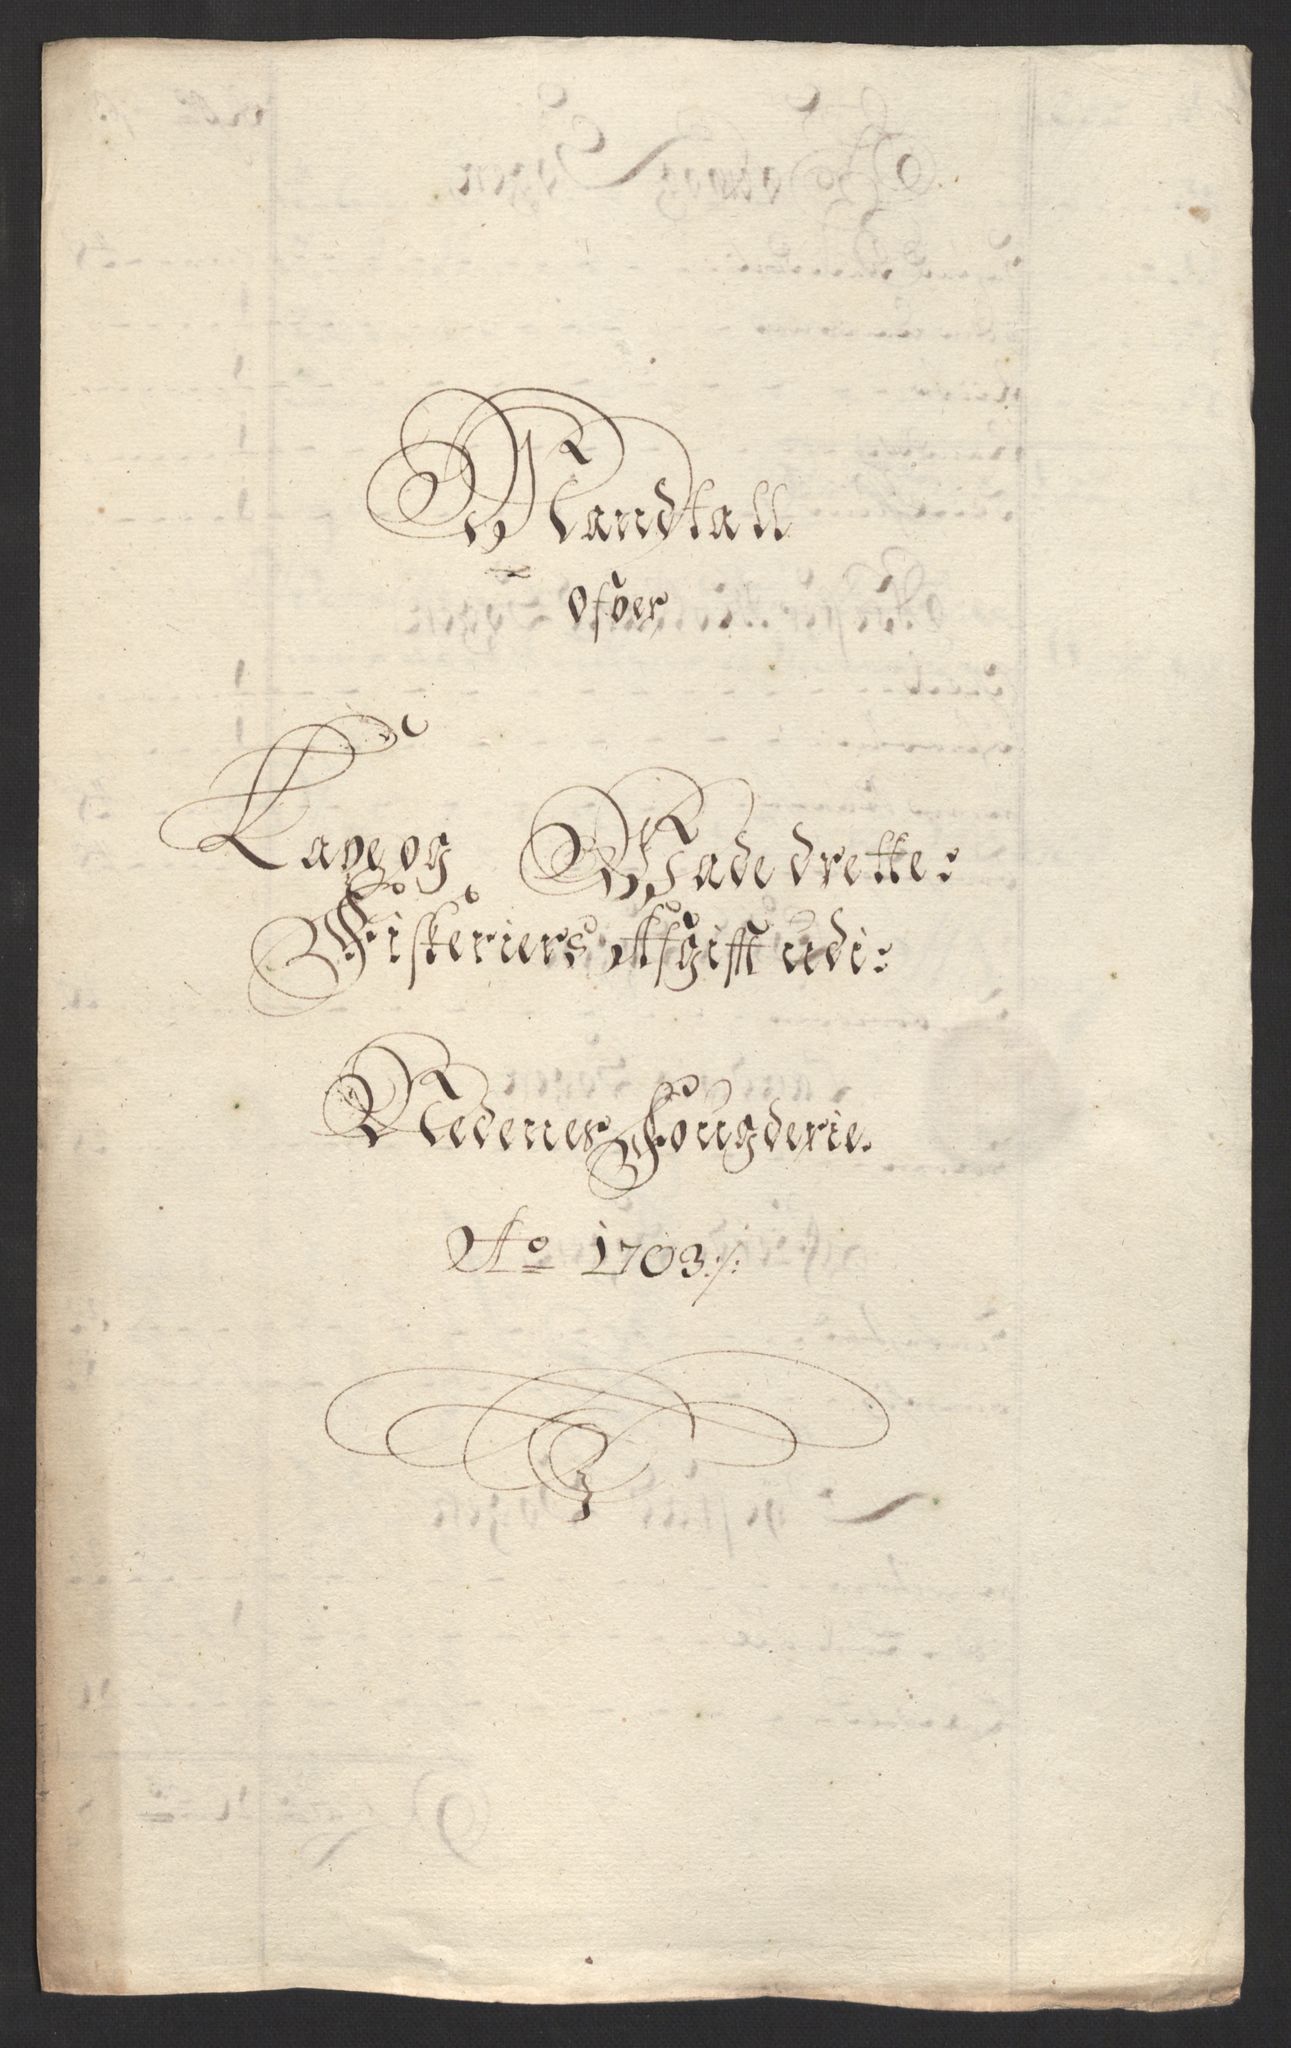 Mandtall
Ofver
Laxe og Wadedrette
Fiskeriers Afgifft udi
Nedenes Fougderie.
Ao 1703 ./.